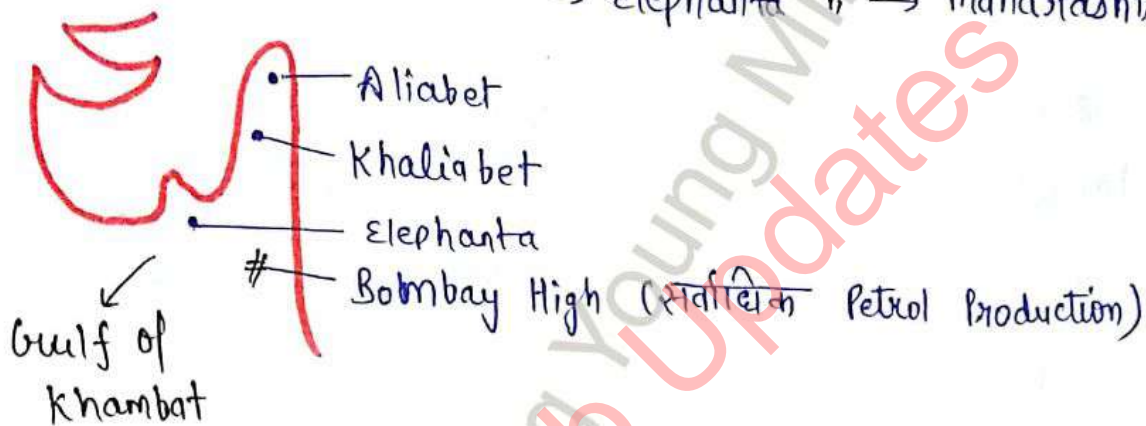 Elephanta " → Maharashtra
Aliabet
Khaliabet
Elephanta
# Bombay High (सर्वाधिक Petrol Production)
Gulf of
Khambat
Young
Updates